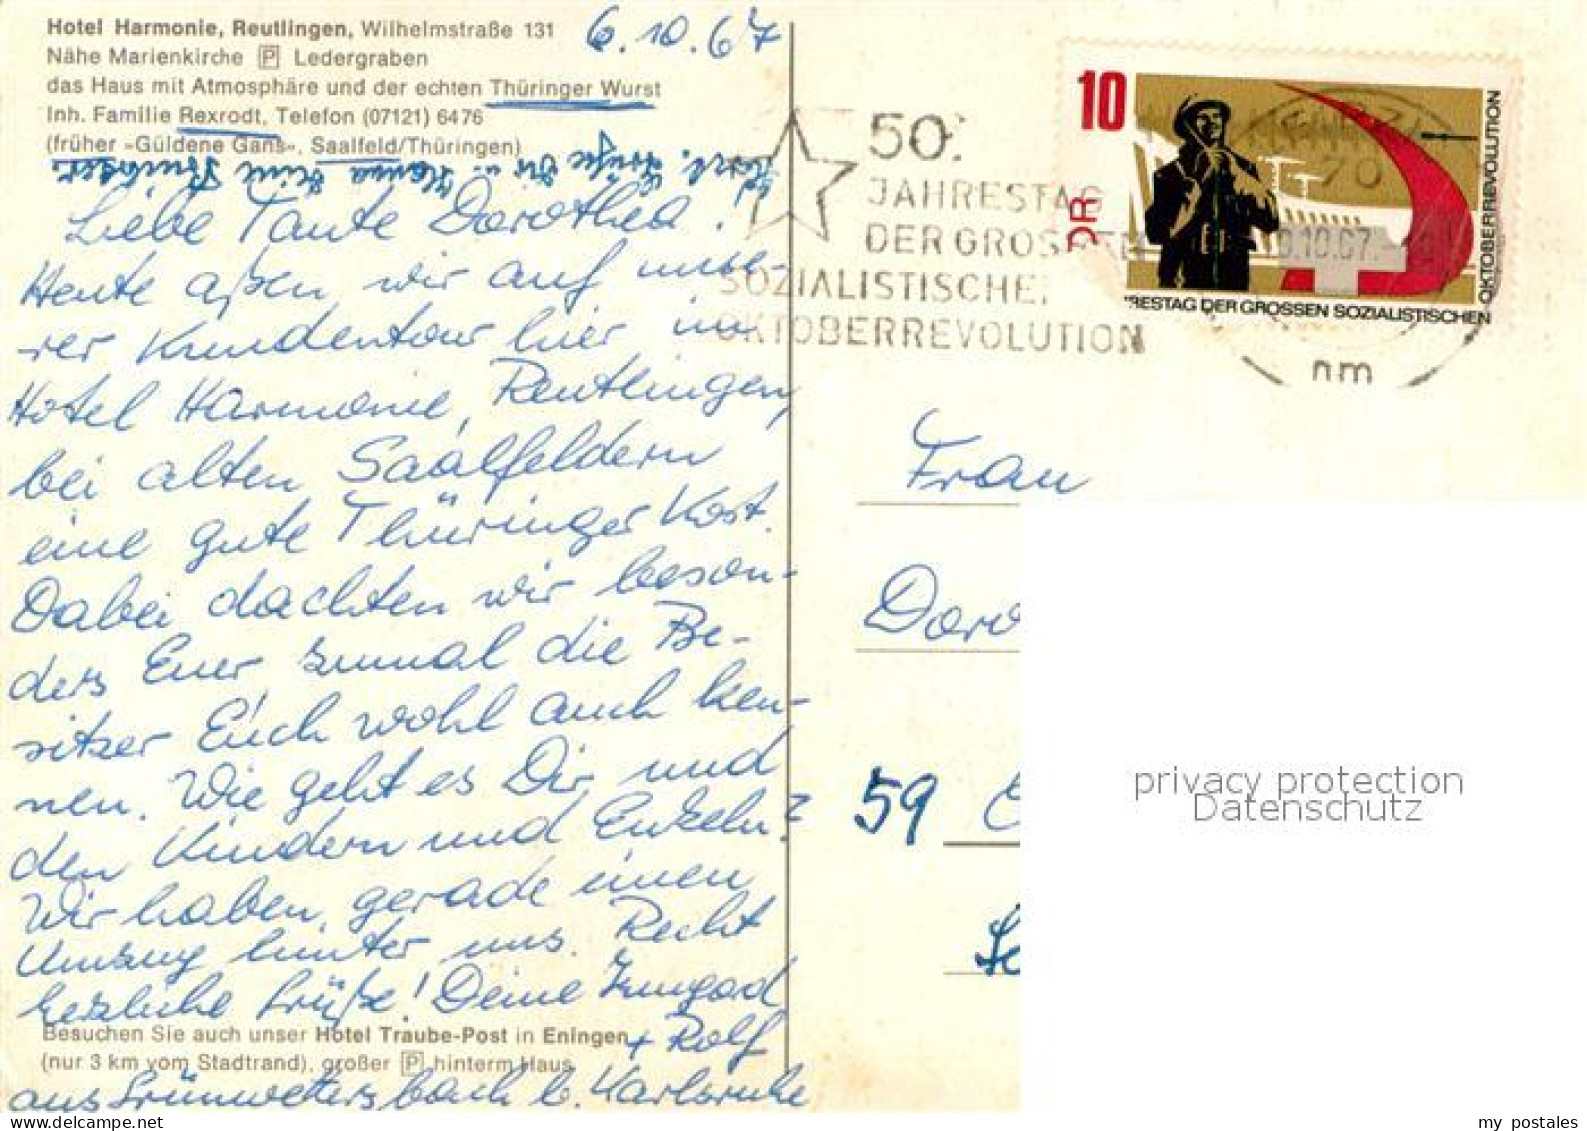 Hotel Harmonie, Reutlingen, Wilhelmstraße 131
Nähe Marienkirche P Ledergraben
das Haus mit Atmosphäre und der echten Thüringer Wurst
Inh. Familie Rexrodt, Telefon (07121) 6476
(früher »Güldene Gans«, Saalfeld/Thüringen)
6.10.67
Herzl. Grüße Dir u. Hanna Deine
Liebe Tante Dorothea!
Heute aßen wir auf unse-
rer Kundentour hier im
Hotel Harmonie, Reutlingen,
bei alten Saalfeldern
eine gute Thüringer Kost.
Dabei dachten wir beson-
ders Euer zumal die Be-
sitzer Euch wohl auch ken-
nen. Wie geht es Dir und
den Kindern und Enkeln?
Wir haben gerade einen
Umzug hinter uns. Recht
herzliche Grüße! Deine Irmgard
+ Rolf
aus Grünwettersbach b. Karlsruhe
Besuchen Sie auch unser Hotel Traube-Post in Eningen
(nur 3 km vom Stadtrand), großer P hinterm Haus
50.
JAHRESTAG
DER GROSSEN
SOZIALISTISCHEN
OKTOBERREVOLUTION
10
DDR
RESTAG DER GROSSEN SOZIALISTISCHEN
OKTOBERREVOLUTION
70
6.10.67
nm
Frau
Doro
59
privacy protection
Datenschutz
my postales